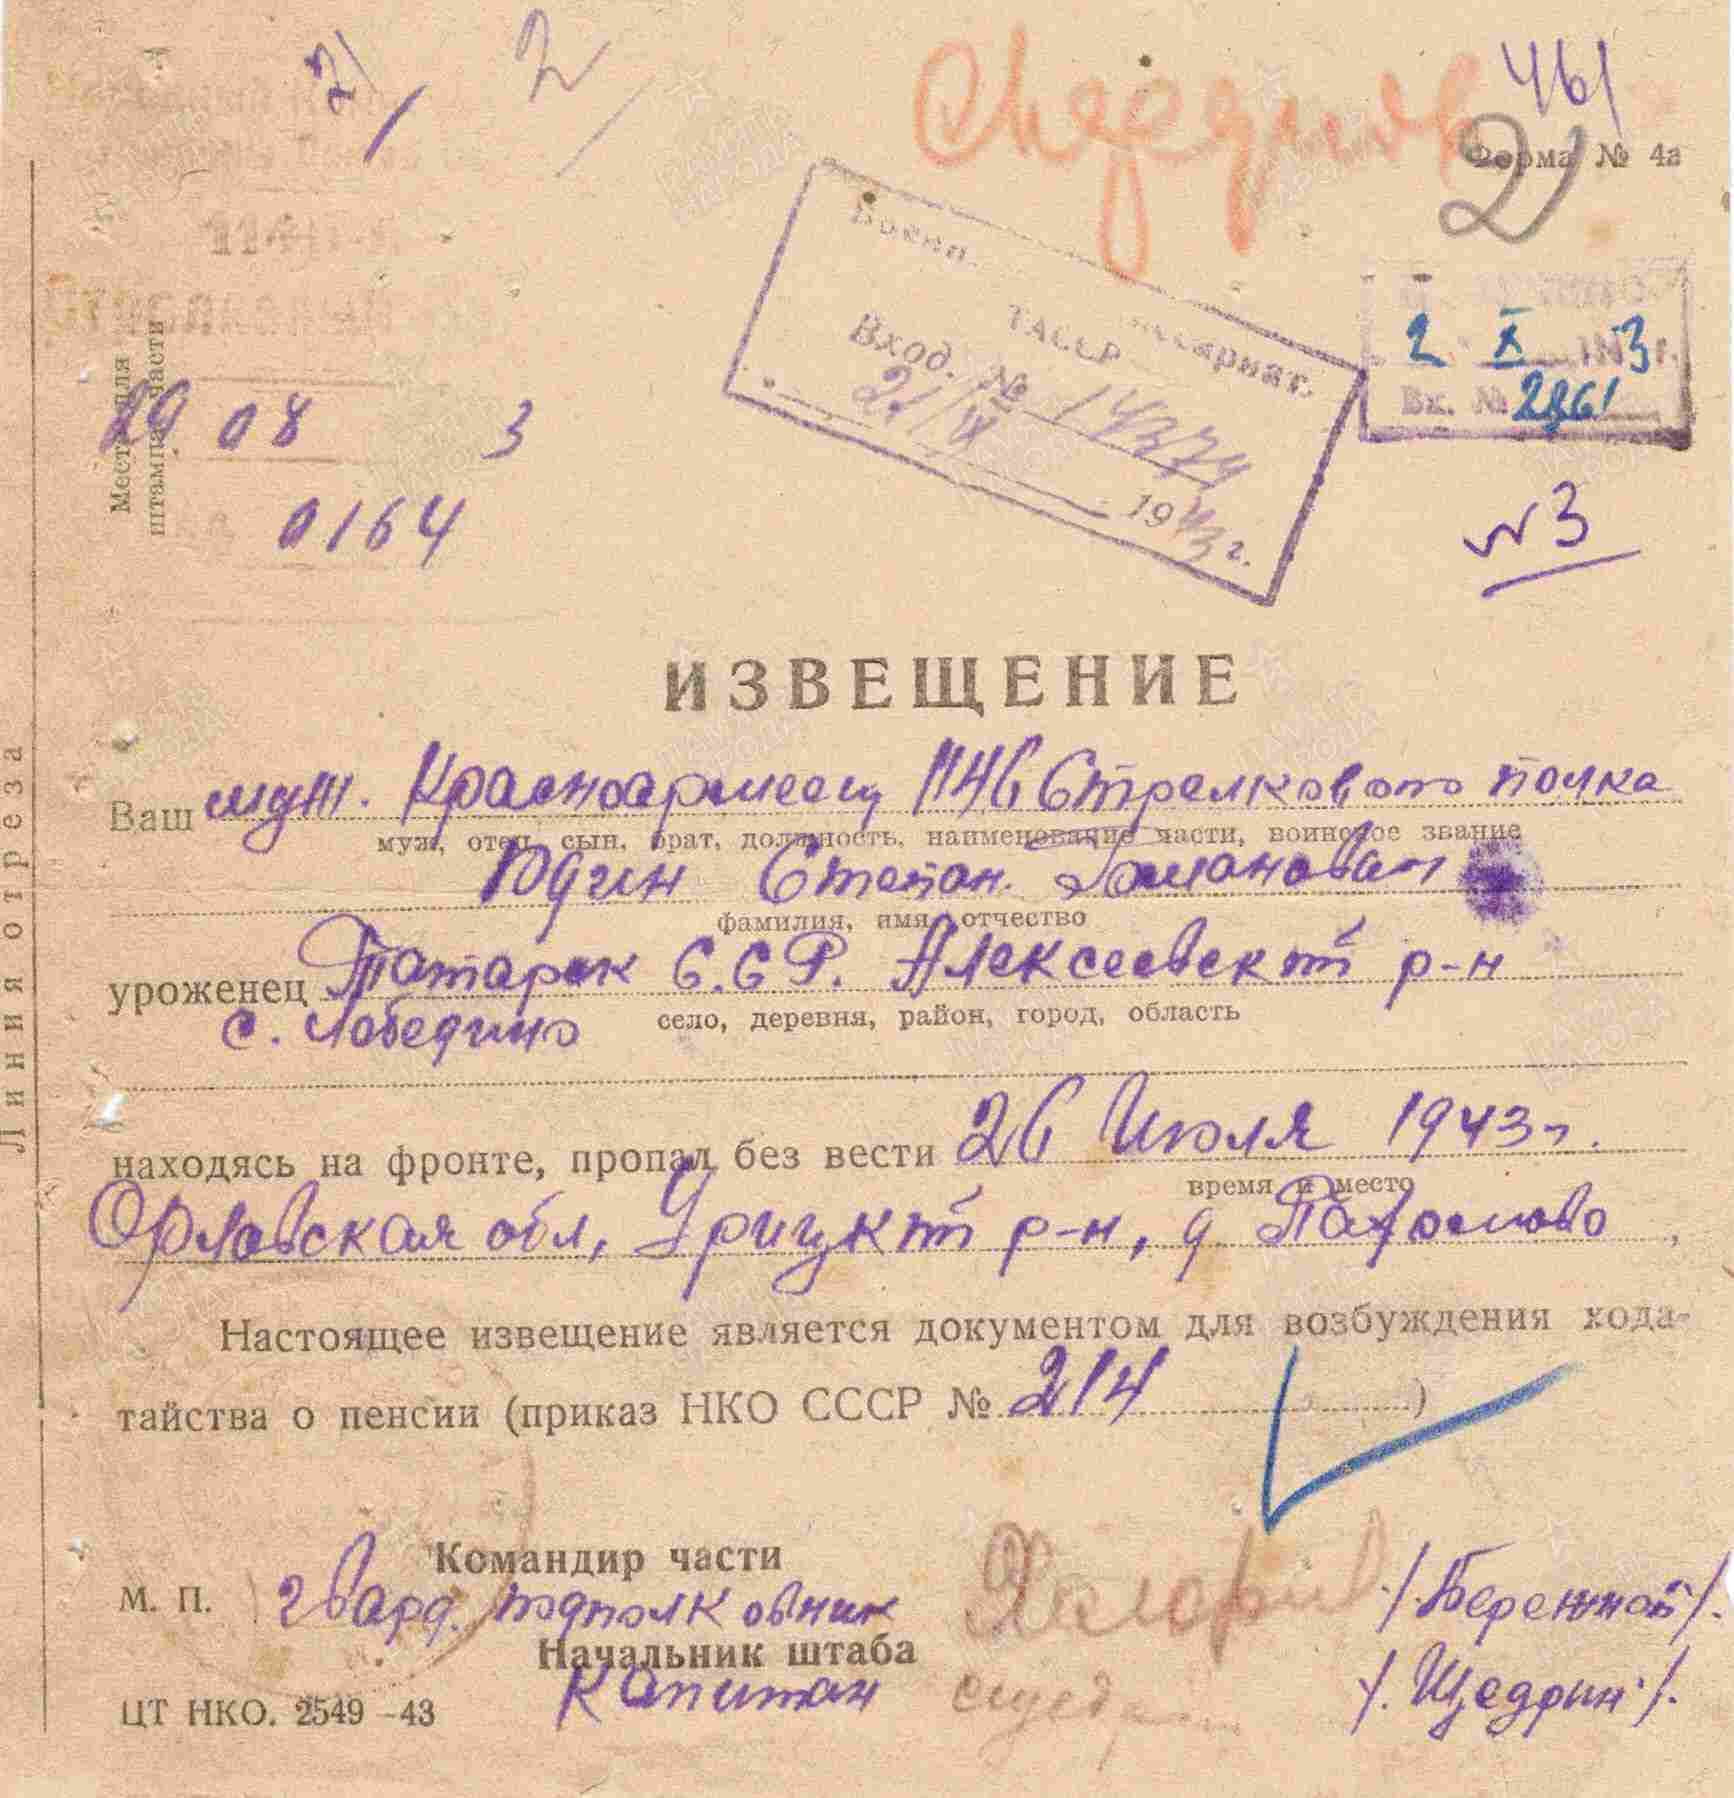 2/
2
461
Форма № 4а
2
Военн.
ТАССР
Вход. № 14374
21/IX 1943 г.
2 X 1943 г.
Вх. № 2861
Место для
штампа части
29 08 3
0164
№3
ИЗВЕЩЕНИЕ
Ваш муж. Красноармеец 1146 Стрелкового полка
муж, отец, сын, брат, должность, наименование части, воинское звание
Юдин Степан. Романович
фамилия, имя, отчество
уроженец Татарск С.С.Р. Алексеевский р-н
село, деревня, район, город, область
с. Лебедино
находясь на фронте, пропал без вести 26 Июля 1943 г.
время и место
Орловская обл, Урицкий р-н, д. Пахомово,
Настоящее извещение является документом для возбуждения хода-
тайства о пенсии (приказ НКО СССР № 214)
Командир части
М. П. гвард. подполковник /Бережной/.
Начальник штаба
Капитан Щед /.Щедрин./.
ЦТ НКО. 2549—43
Линия отреза